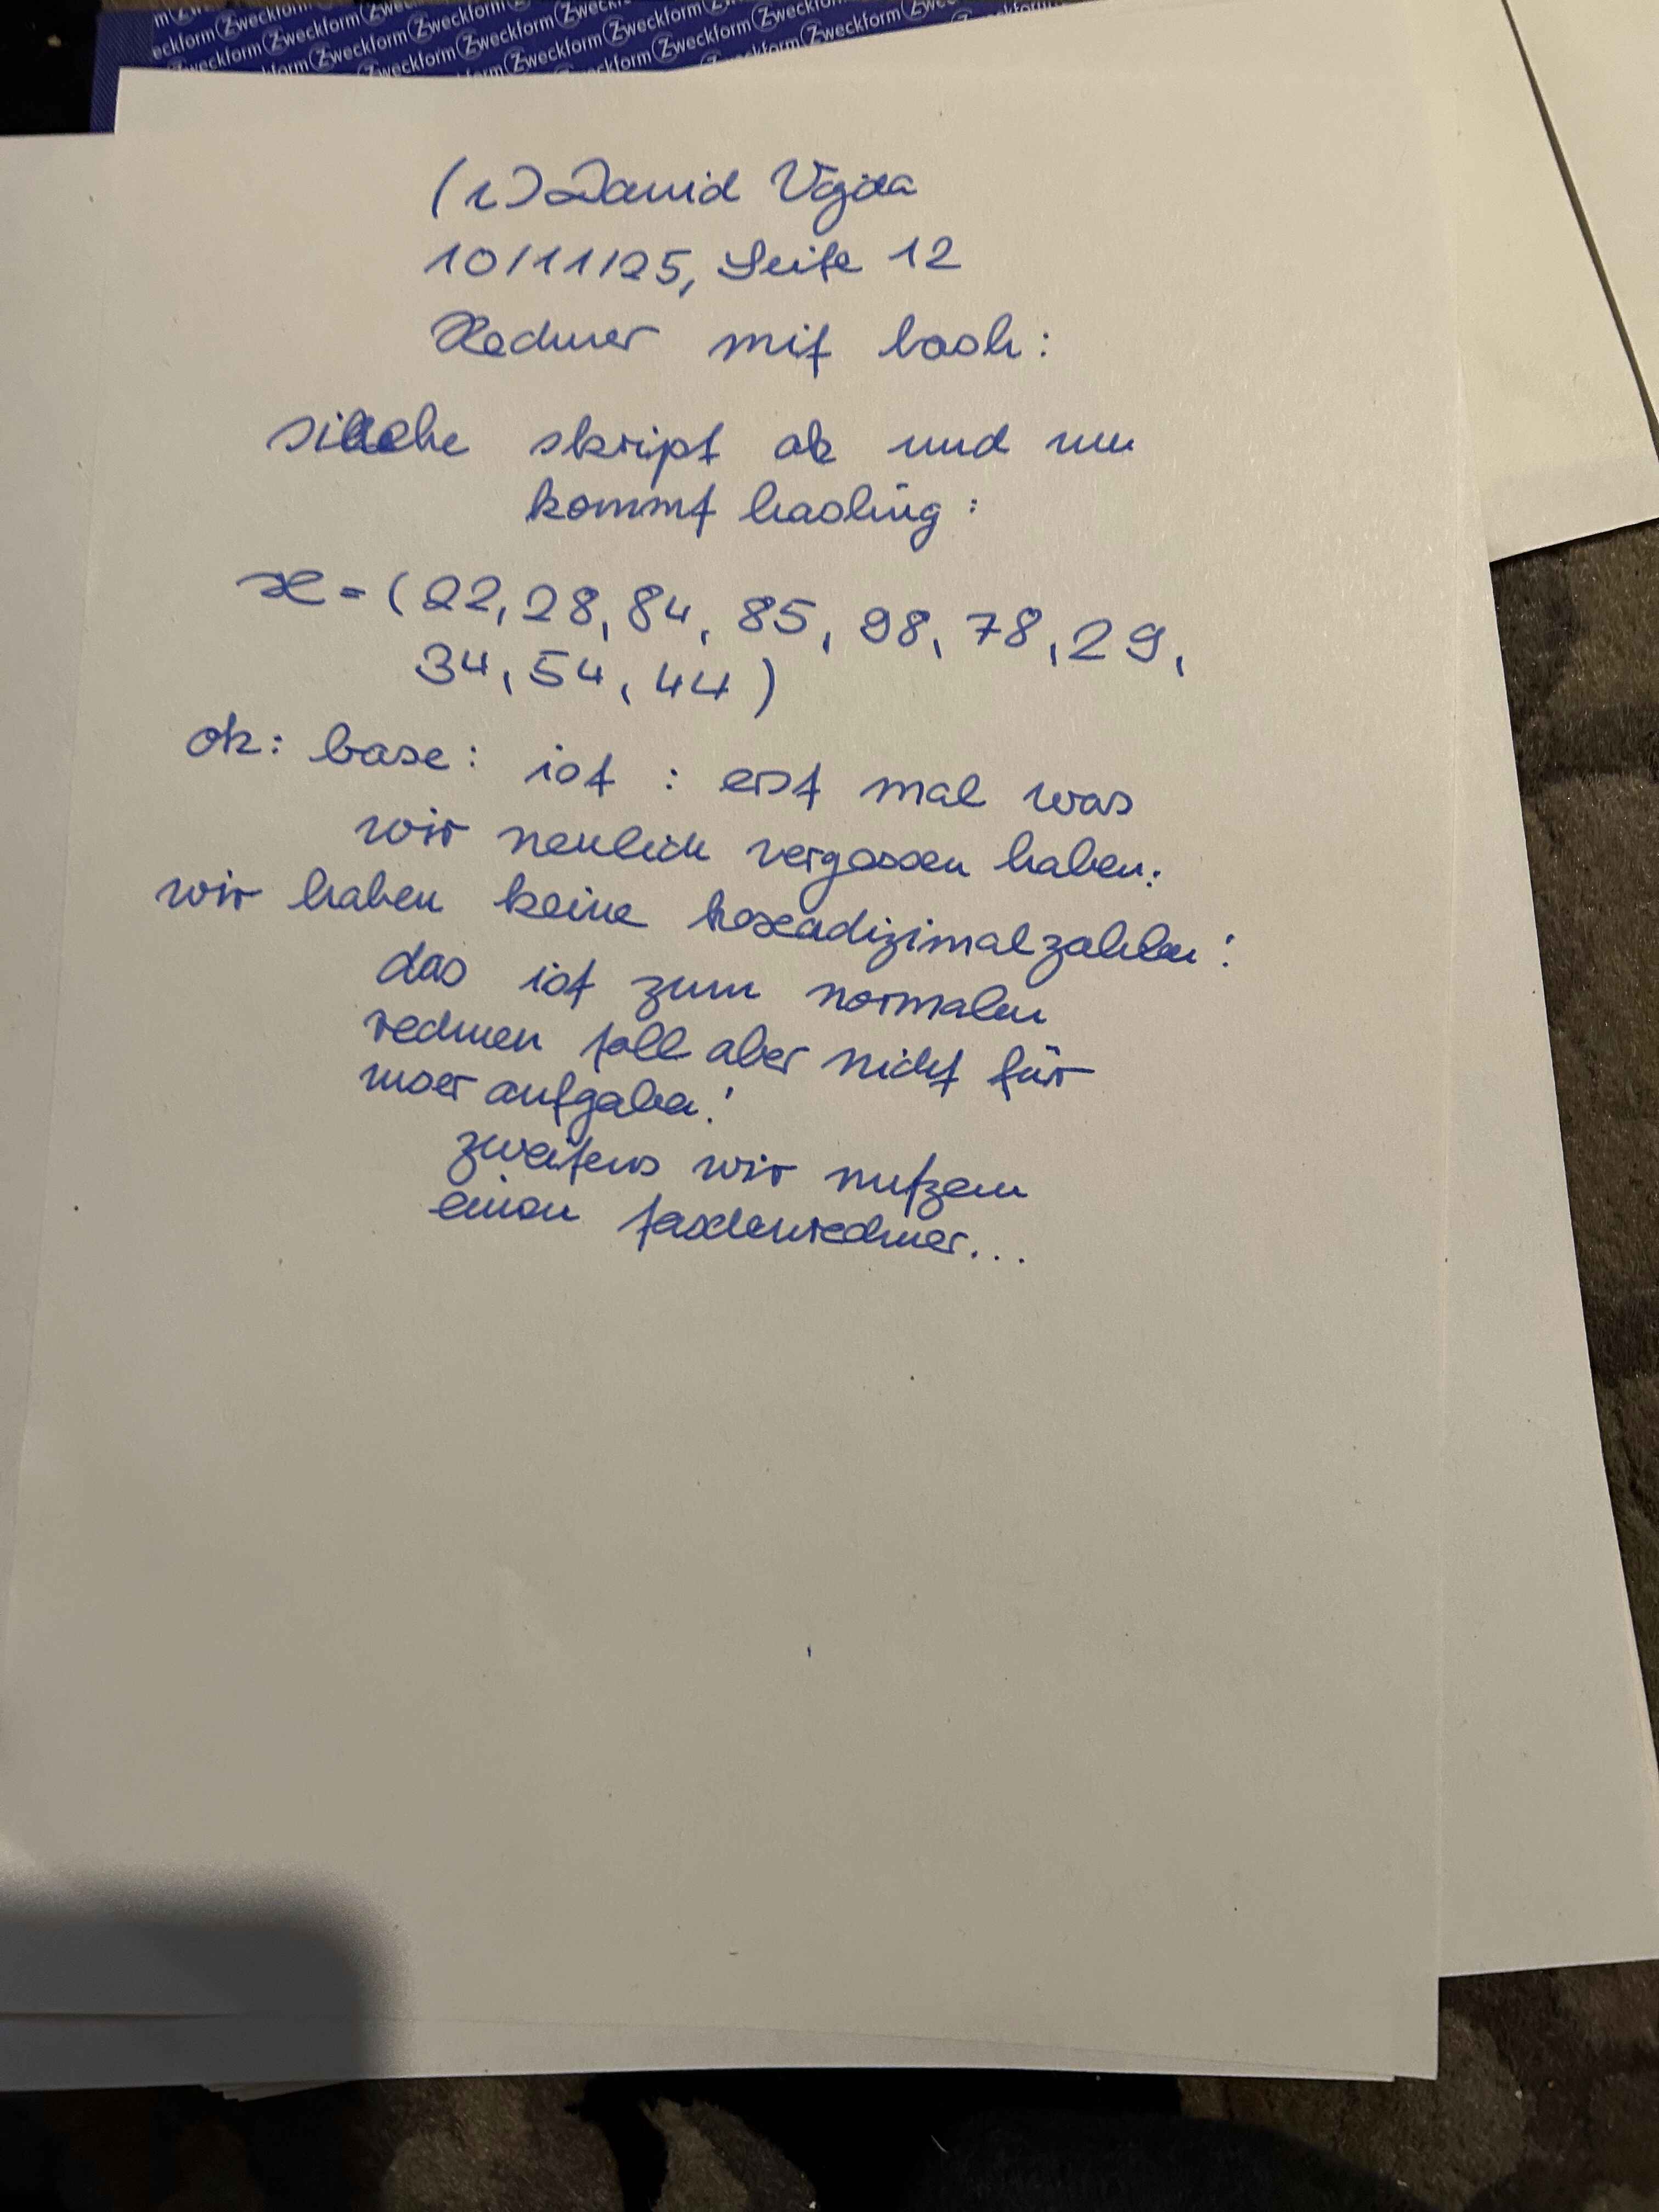 Zweckform Zweckform Zweckform Zweckform Zweckform
(c) David Vajda
10/11/25, Seite 12
Rechner mit bash:
siehe skript ok und nun
kommt hashing:
x=(22,28,84,85,98,78,29,
34,54,44)
ok: base: ist: erst mal was
wir neulich vergessen haben:
wir haben keine hexadizimalzahlen!
das ist zum normalen
rechnen toll aber nicht für
unser aufgabe!
zweitens wir nutzen
einen taschenrechner...